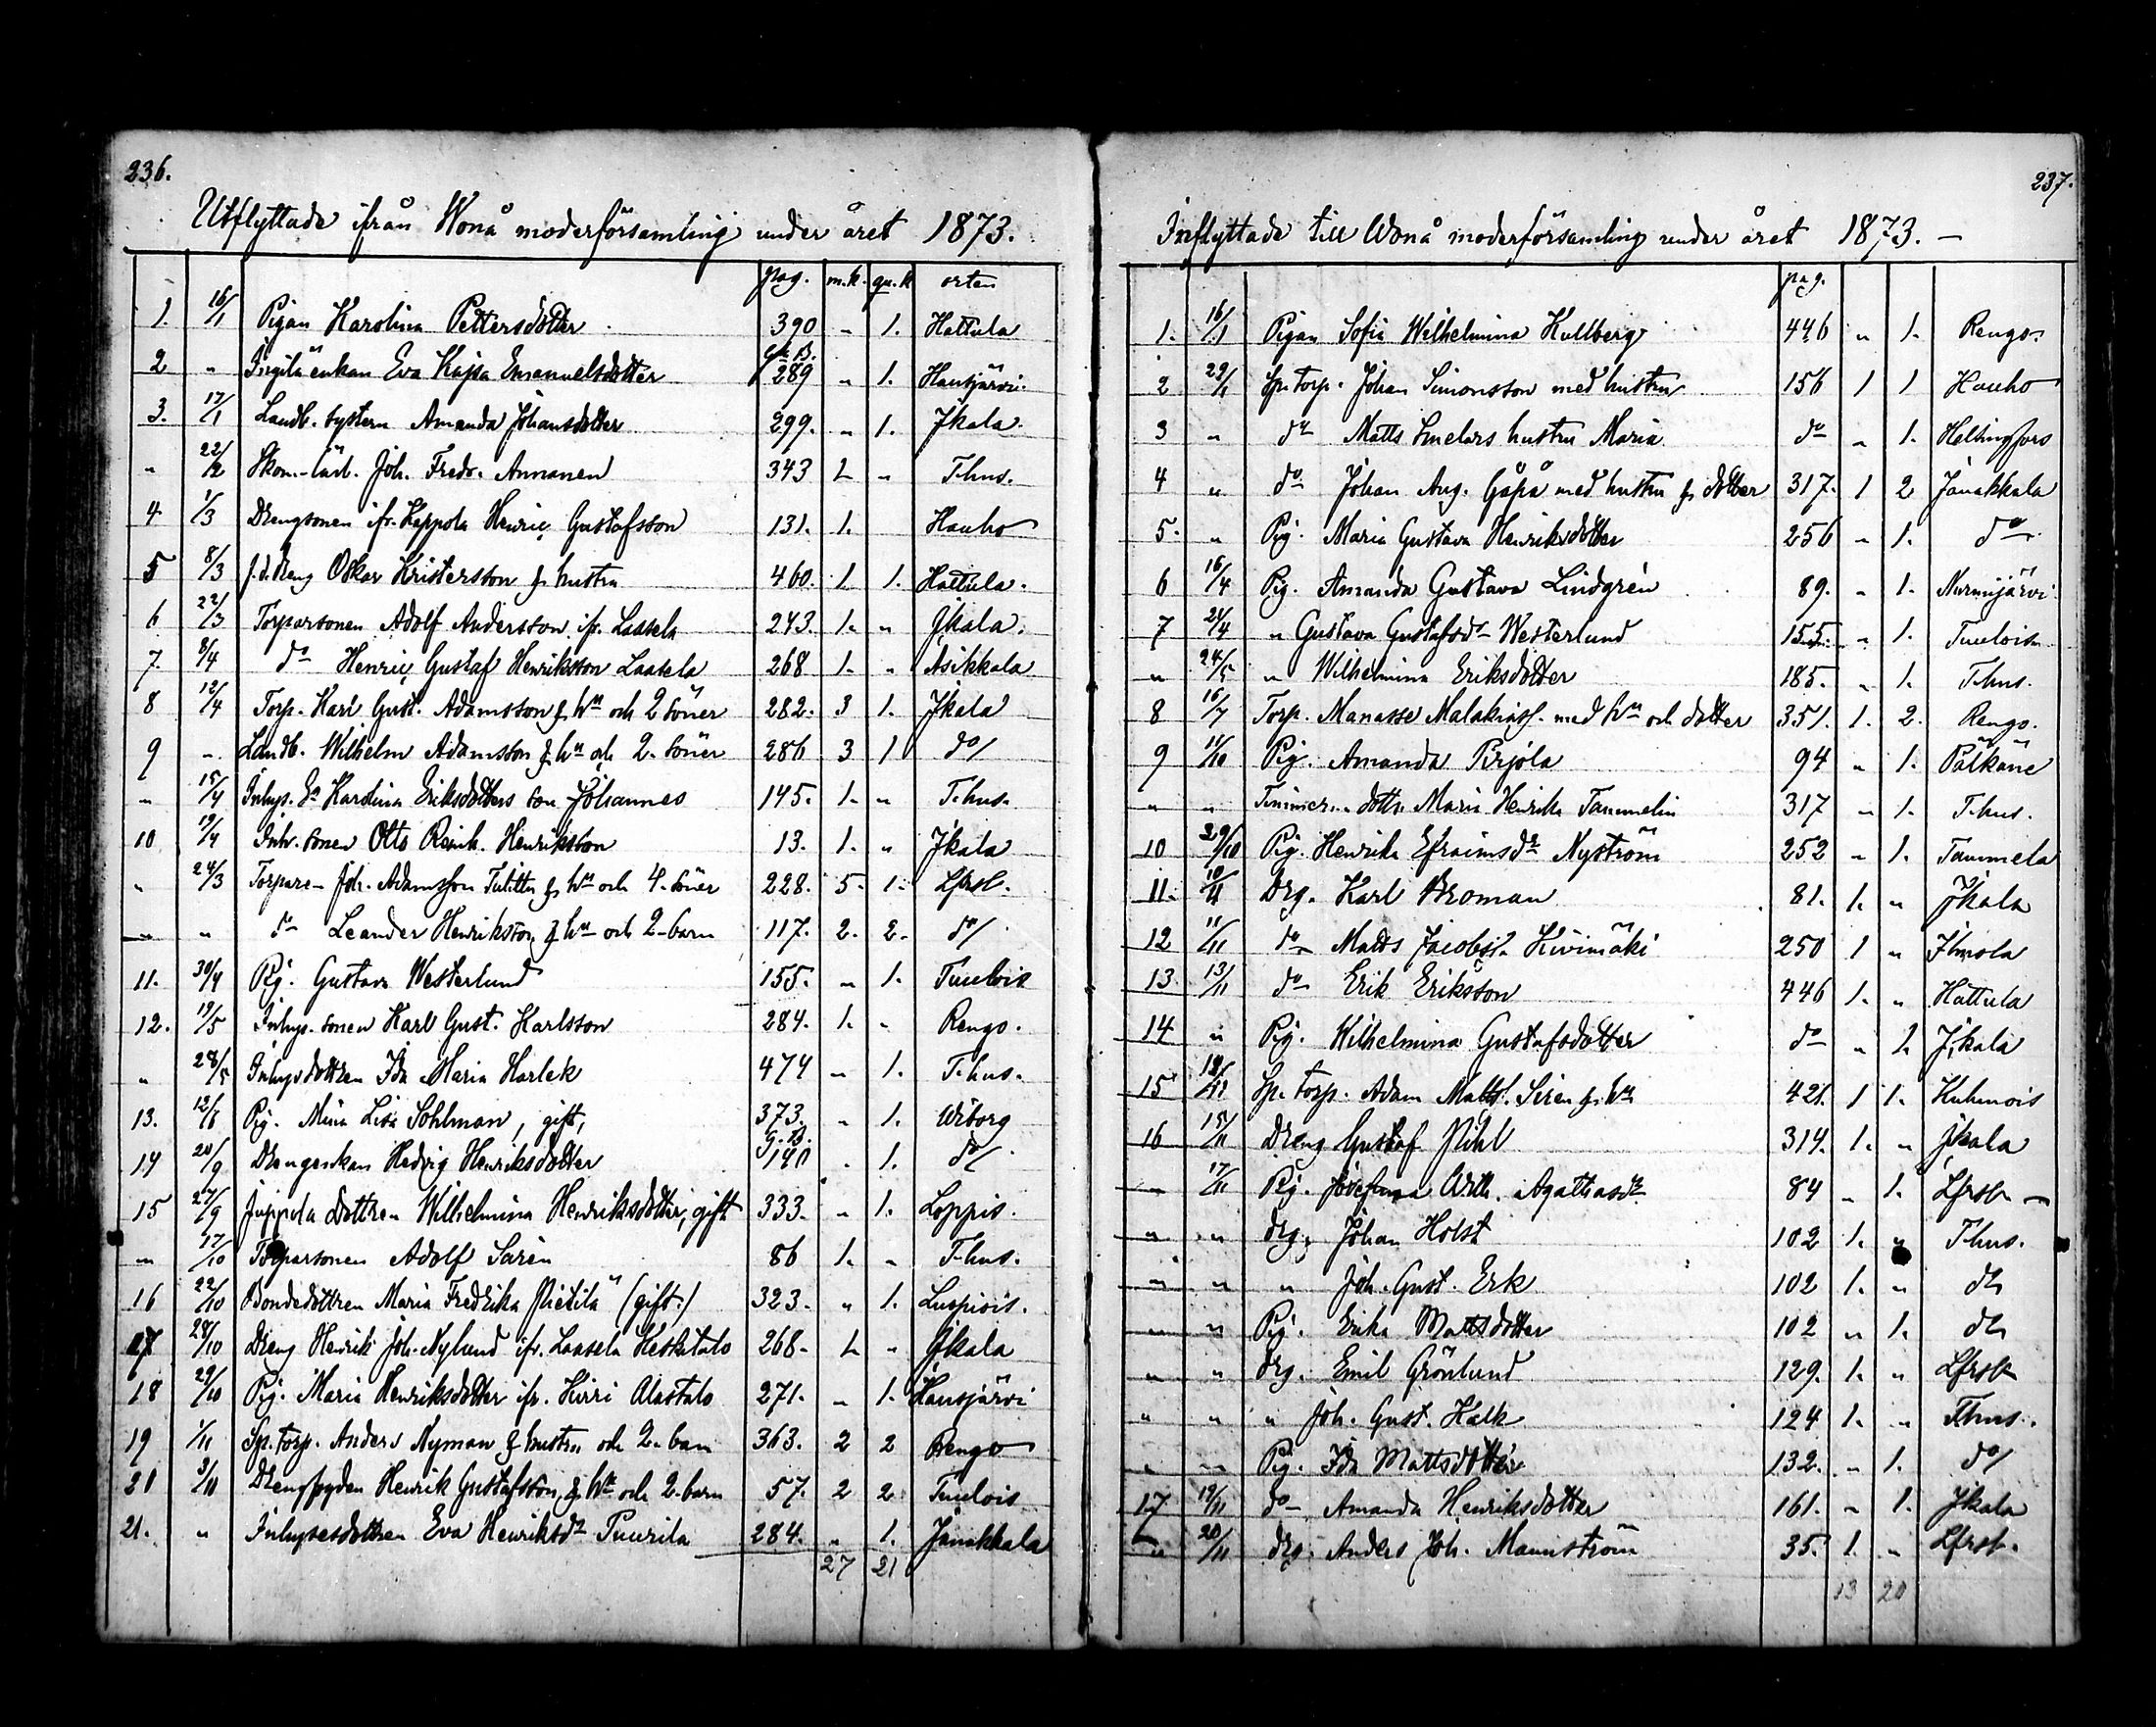 236.
Utflyttade ifrån Wonå moderförsamling under året 1873.
pag. m.k. qu.k orten
1. 16/1 Pigan Karolina Pettersdotter 390 " 1. Hattula
2 " Eva Kajsa Emanuelsdotter G. B. 289 " 1. Hausjärvi.
3. 17/1 Landb. systern Amanda Johansdotter 299. " 1. Jkala.
" 22/2 Skom.-lärl. Joh. Fredr. Annanen 343 1 " T-hus.
4 1/3 Drengsonen ifr. Leppola Henric Gustafsson 131. 1. Hauho
5 8/3 f.d. dreng Oskar Kristersson & hustru 460. 1 1. Hattula.
6 22/3 Torparsonen Adolf Andersson ifr. Laasela 243. 1. " Jkala.
7. 8/4 do Henric Gustaf Henriksson Laasela 268 1. " Asikkala
8 12/4 Torp. Karl Gust. Adamsson & hu och 2 söner 282. 3 1. Jkala
9 " Landb. Wilhelm Adamsson & hu och 2. söner 286 3 1 do/
" 15/4 Inhys. Ea Karolina Eriksdotters son Johannes 145. 1. " T.hus.
10 19/4 Inh. sonen Otto Reinh. Henriksson 13. 1. " Jkala
" 24/3 Torpare Joh. Adamsson & hu och 4. söner 228. 5. 1. Lfrsb.
" " do Leander Henriksson & hu och 2 barn 117. 2. 2. do/
11. 30/4 Pig. Gustava Westerlund 155. " 1. Tuulois
12. 19/5 Inhys. sonen Karl Gust. Karlsson 284. 1. " Rengo.
" 28/5 Inhysdottren Ida Maria Harlek 474 " 1. T-hus.
13. 12/6 Pig. Mina Lisa Sohlman, gift, 373. " 1. Wiborg
14 20/9 Drengenkan Hedvig Henriksdotter G. B. 140 " 1. do/
15 27/9 Juppola dottren Wilhelmina Henriksdotter, gift 333. " 1. Loppis.
" 17/10 Torparsonen Adolf Sarén 86 1. " T-hus.
16 22/10 Bondedottren Maria Fredrika Pietilä (gift.) 323. " 1. Luopiois.
17 28/10 Dreng Henrik Joh. Nylund ifr. Laasela Keskitalo 268. 1. " Jkala
18 29/10 Pig. Maria Henriksdotter ifr. Hirri Alastalo 271. " 1. Hausjärvi
19 1/11 Sp.torp. Anders Nyman & hustru och 2. barn 363. 2 2 Rengo
20 3/11 Henrik Gustafsson & hu och 2. barn 57. 2 2 Tuulois
21. " Inhysesdottren Eva Henriksdr Puurila 284. " 1. Janakkala
27 21
237.
Inflyttade till Wonå moderförsamling under året 1873. –
pag.
1. 16/1 Pigan Sofia Wilhelmina Kullberg 446 " 1. Rengo.
2 29/1 Sp. torp. Johan Simonsson med hustru 156 1 1 Hauho
3 " do Matts Smelars hustru Maria do " 1. Helsingfors
4 " do Johan Aug. Gåpå med hustru & dotter 317. 1 2 Janakkala
5. " Pig. Maria Gustava Henriksdotter 256 " 1. do
6 16/4 Pig. Amanda Gustava Lindgrén 89. " 1. Nurmijärvi
7 24/4 " Gustava Gustafsdr Westerlund 155. " 1. Tuulois
" 24/5 " Wilhelmina Eriksdotter 185. " 1. T-hus.
8 16/7 Torp. Manasse Malakias. med hu och dotter 351. 1. 2. Rengo.
9 11/10 Pig. Amanda Brjola 94 " 1. Pälkäne
" " Timmerm. dottr. Maria Henrika Tammelin 317 " 1. T-hus.
10 29/10 Pig. Henrika Efraimsdr Nyström 252 " 1. Tammela
11. 10/11 Drg. Karl Broman 81. 1. " Jkala
12 11/11 do Matts Jacobss. Kivimäki 250 1 " Ilmola
13. 13/11 do Erik Eriksson 446 1. " Hattula
14 " Pig. Wilhelmina Gustafsdotter do " 1. Jkala
15 Sp. torp. Adam Matts. Siren & hu 421. 1 1. Kuhmois
16 15/11 Dreng Gustaf Pihl 314. 1. " Jkala
" 17/11 Pig. Josefina Wilh. Agathasdr 84 " 1. Lfrsb.
" " drg. Johan Holst 102 1. " T-hus.
" " " Joh. Gust. Erk 102 1. " do
" " Pig. Erika Mattsdotter 102 " 1. do
" " drg. Emil Grönlund 129. 1. " Lfrsb.
" " " Joh. Gust. Halk 124 1. " T-hus.
" " Pig. Ida Mattsdotter 132. " 1. do/
17 19/11 do Amanda Henriksdotter 161. " 1. Jkala
" 20/11 drg. Anders Joh. Mannström 35. 1. " Lfrsb.
13 20